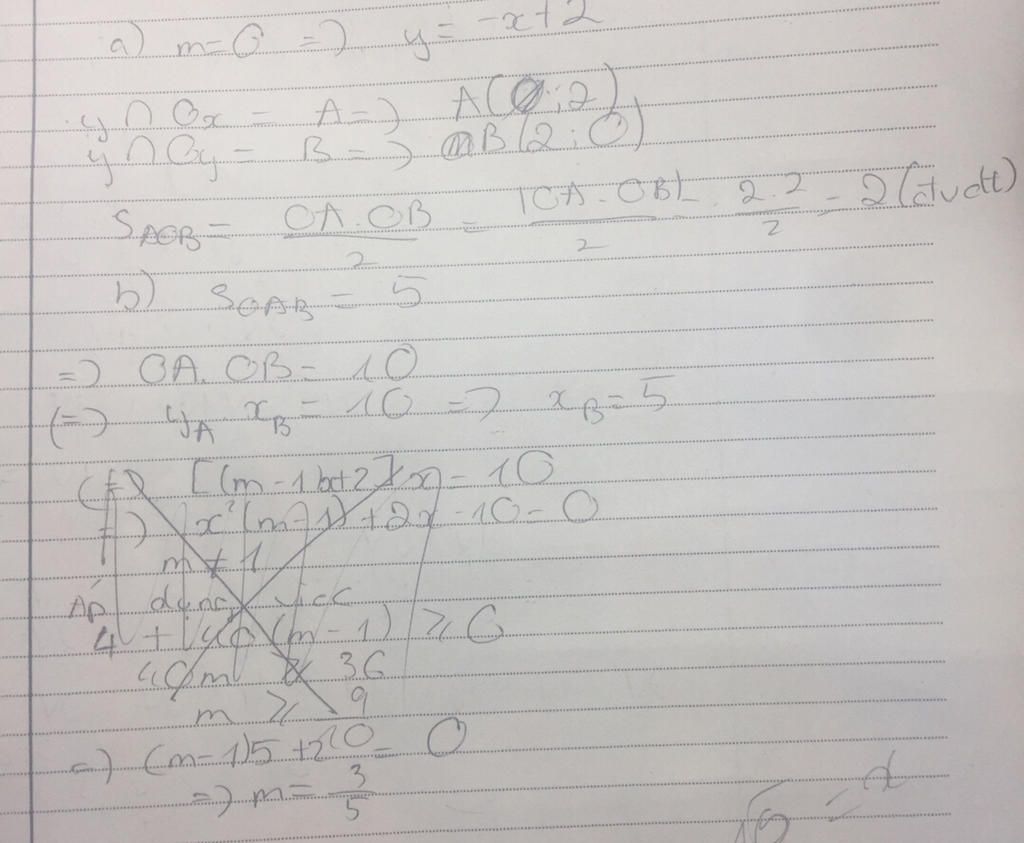 a) m=0 => y = -x+2
y ∩ Ox = A => A(0;2)
y ∩ Oy = B => B(2;0)
S_AOB = OA.OB/2 = |OA.OB|/2 = 2.2/2 = 2 (đvdt)
b) S_OAB = 5
=> OA. OB = 10
(=) y_A x_B = 10 => x_B = 5
(=) [(m-1)x+2]x = 10
x²(m-1)+2x-10=0
m ≠ 1
Áp dụng
4 + 40(m-1) ≥ 0
40m ≥ 36
m ≥ 9/10
=) (m-1)5+2 = 0
=> m = 3/5